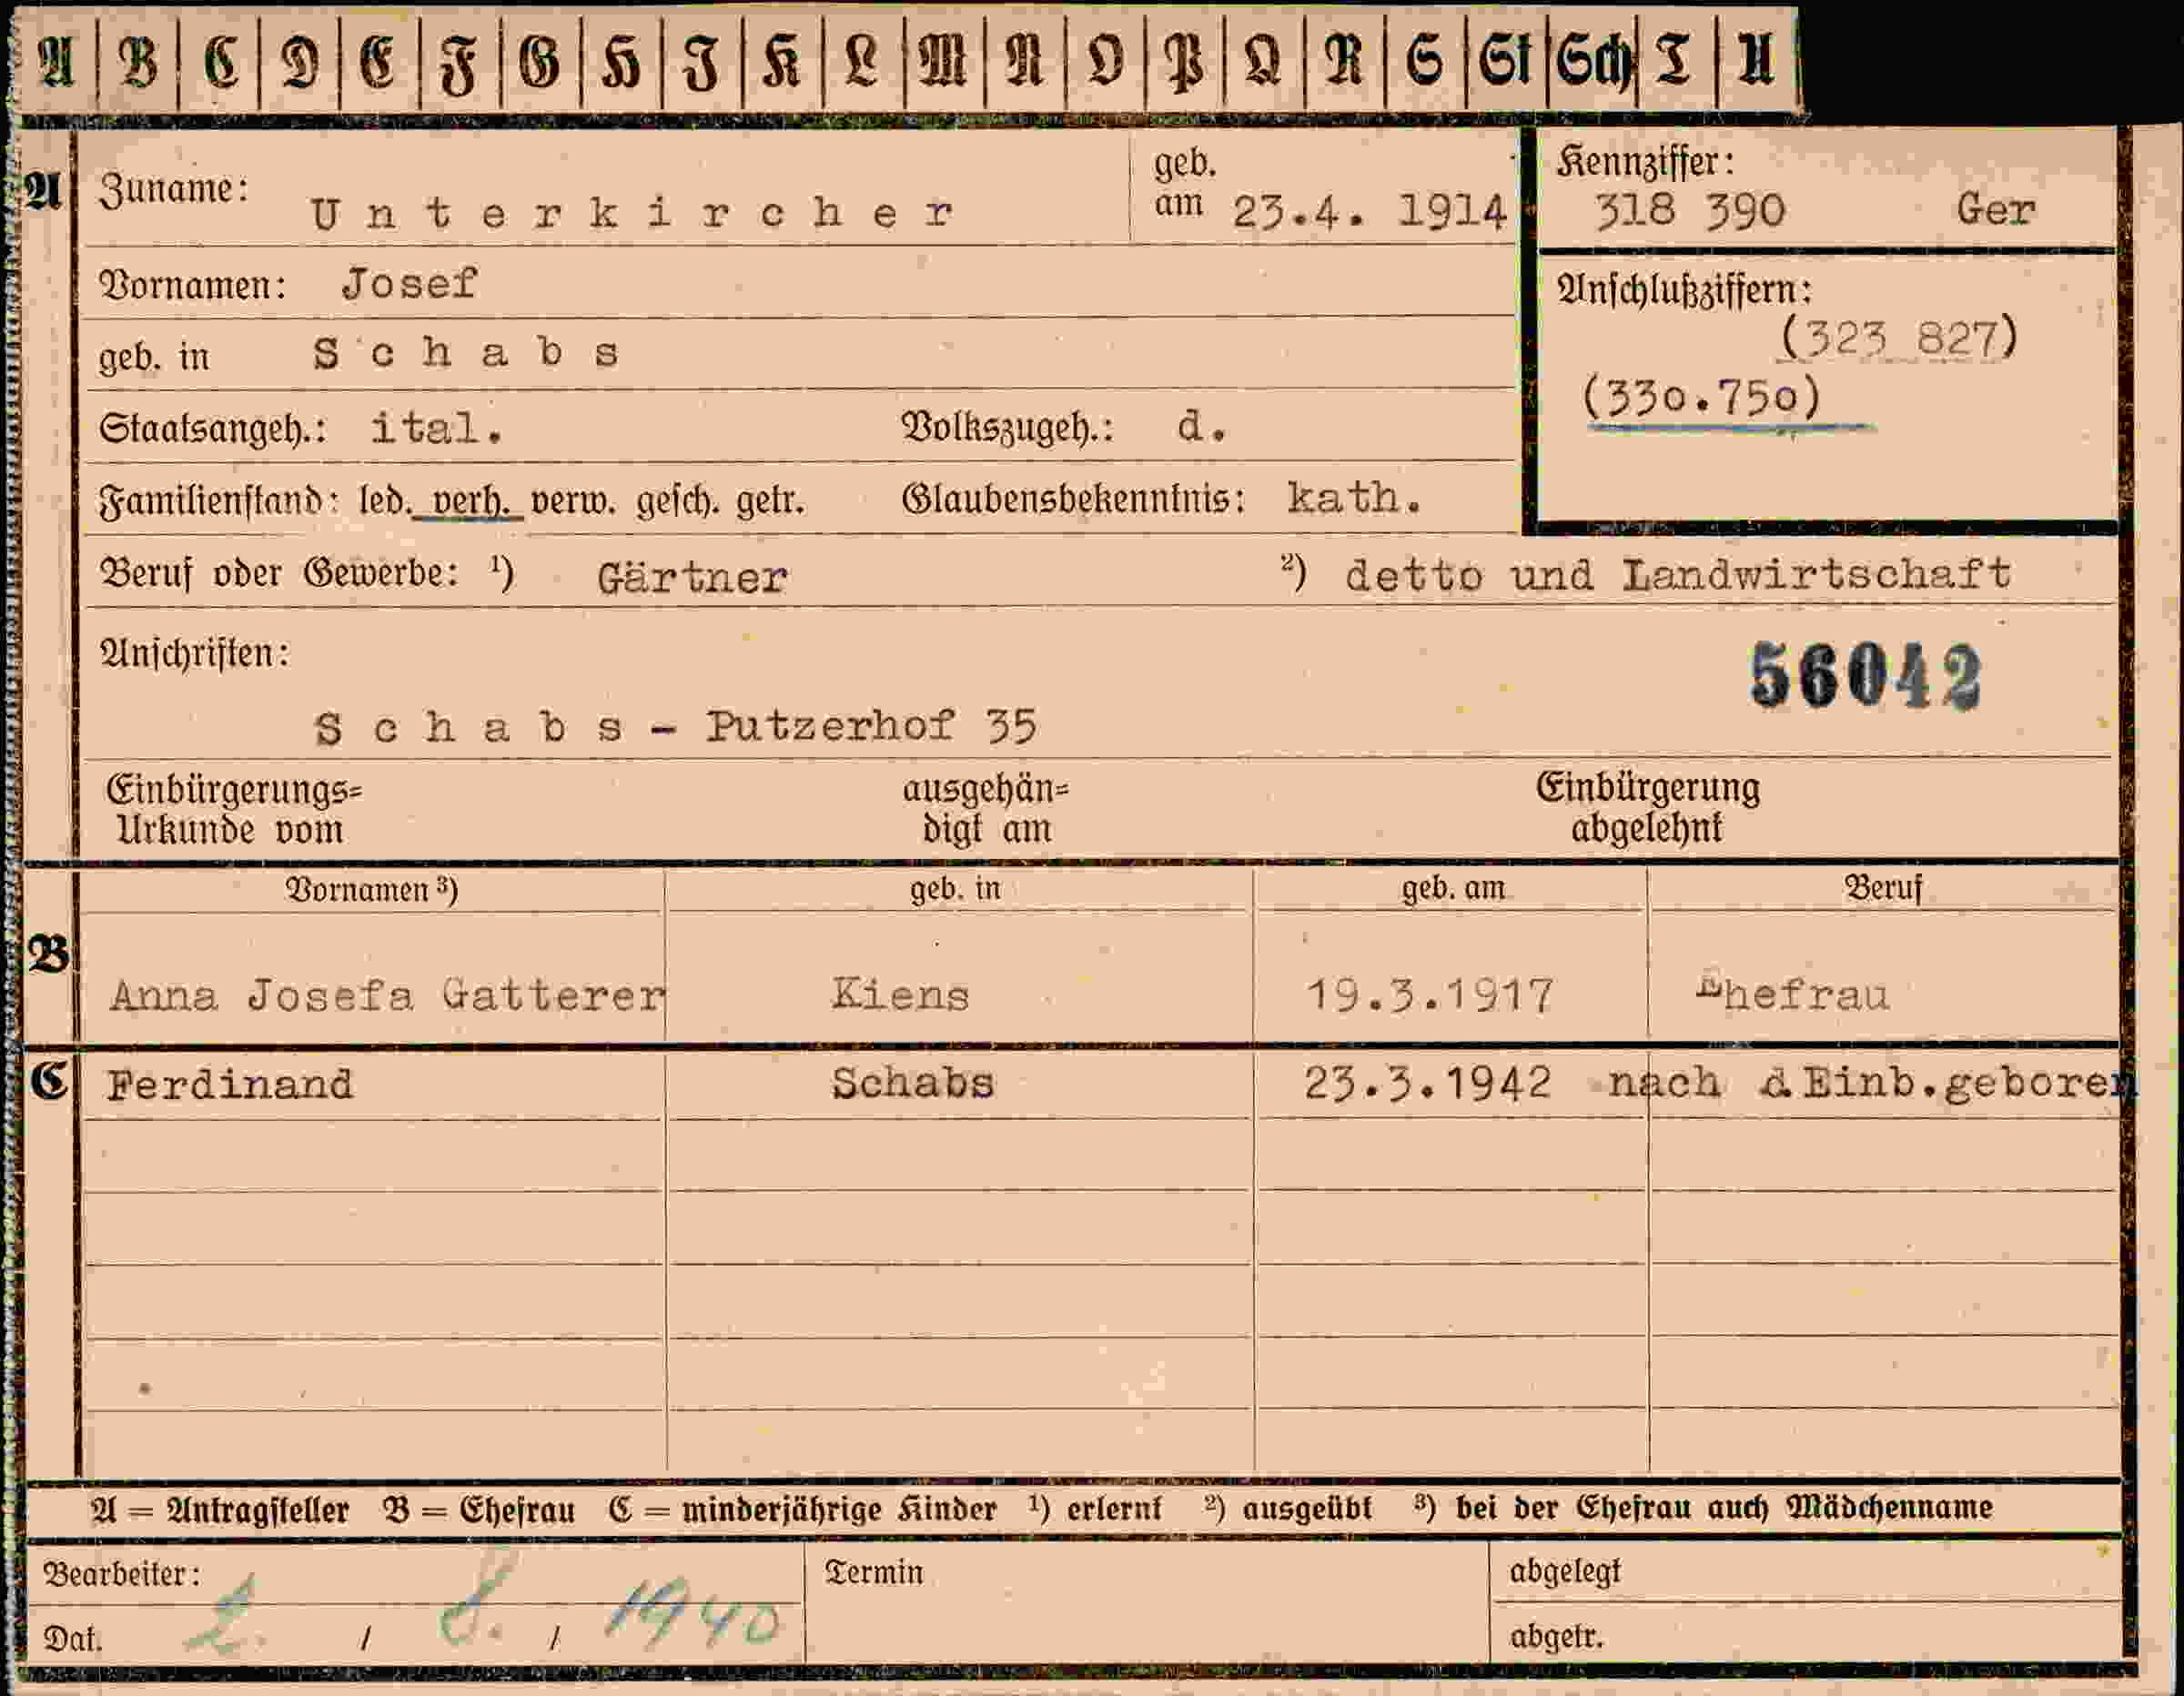 A B C D E F G H I K L M N O P Q R S St Sch T U
A Zuname: Unterkircher geb. am 23.4. 1914 Kennziffer: 318 390 Ger
Vornamen: Josef Anschlußziffern:
(323 827)
geb. in Schabs
(330.750)
Staatsangeh.: ital. Volkszugeh.: d.
Familienstand: led. verh. verw. gesch. getr. Glaubensbekenntnis: kath.
Beruf oder Gewerbe: ¹) Gärtner ²) detto und Landwirtschaft
Anschriften:
56042
Schabs - Putzerhof 35
Einbürgerungs= ausgehän= Einbürgerung
Urkunde vom digt am abgelehnt
Vornamen ³) geb. in geb. am Beruf
B Anna Josefa Gatterer Kiens 19.3.1917 Ehefrau
C Ferdinand Schabs 23.3.1942 nach d Einb.geboren
A = Antragsteller B = Ehefrau C = minderjährige Kinder ¹) erlernt ²) ausgeübt ³) bei der Ehefrau auch Mädchenname
Bearbeiter: Termin abgelegt
Dat. 2. / 8. / 1940 abgetr.